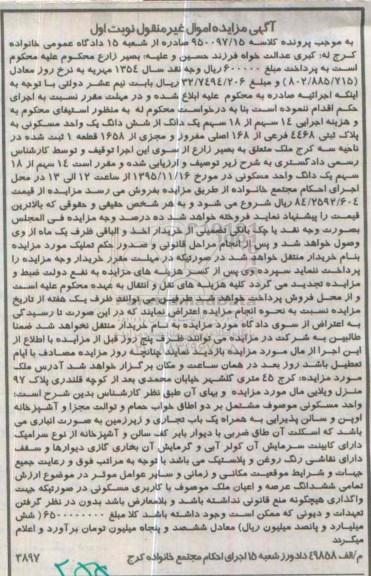 آگهی مزایده اموال غیرمنقول نوبت اول
به موجب پرونده کلاسه ۹۵۰۰۹۷/۱۵ صادره از شعبه ۱۵ دادگاه عمومی خانواده
کرج له: کبری عدالت خواه فرزند حسین و علیه: بصیر زارع محکوم علیه محکوم
است به پرداخت مبلغ ۶۰۰۰۰۰ ریال وجه نقد سال ۱۳۵۴ مهریه به نرخ روز معادل
(۸۰۲/۸۸۵/۷۱۵) و مبلغ ۳۲/۷۴۹۴/۲۰۶ ریال بابت نیم عشر دولتی با توجه به
اینکه اجرائیه صادره به محکوم علیه ابلاغ شده و در مهلت مقرر نسبت به اجرای
حکم اقدام ننموده است بنا به درخواست محکوم له به منظور استیفای محکوم به
و هزینه اجرایی ۱۴ سهم از ۱۸ سهم یک دانگ از شش دانگ یک واحد مسکونی به
پلاک ثبتی ۴۴۶۸ فرعی از ۱۶۸ اصلی مفروز و مجزی از ۱۶۵۸ قطعه ۱ ثبت شده در
ناحیه سه کرج ملک متعلق به بصیر زارع از سوی این اجرا توقیف و توسط کارشناس
رسمی دادگستری به شرح زیر توصیف و ارزیابی شده و مقرر است ۱۴ سهم از ۱۸
سهم یک دانگ واحد مسکونی در مورخ ۱۳۹۵/۱۱/۱۶ از ساعت ۱۲ الی ۱۳ در محل
اجرای احکام مجتمع خانواده از طریق مزایده بفروش می رسد مزایده از قیمت
۸۴/۲۵۹۲/۶۰۴ ریال شروع می شود و به هر شخص حقیقی و حقوقی که بالاترین
قیمت را پیشنهاد نماید فروخته خواهد شد ده درصد وجه مزایده فی المجلس
بصورت وجه نقد یا چک بانکی تضمینی از خریدار اخذ و الباقی ظرف یک ماه از وی
وصول خواهد شد و پس از انجام مراحل قانونی و صدور حکم تملیک مورد مزایده
بنام خریدار منتقل خواهد شد در صورتیکه در مهلت مقرر خریدار وجه مزایده را
پرداخت ننماید سپرده وی پس از کسر هزینه های مزایده به نفع دولت ضبط و
مزایده تجدید می گردد کلیه هزینه های نقل و انتقال به عهده محکوم علیه است
و از محل فروش پرداخت خواهد شد طرفین می توانند ظرف یک هفته از تاریخ
مزایده نسبت به نحوه انجام مزایده اعتراض نمایند که در این صورت تا رسیدگی
به اعتراض از سوی دادگاه مورد مزایده به نام خریدار منتقل نخواهد شد ضمنا
طالبین به شرکت در مزایده می توانند ظرف پنج روز قبل از مزایده با اطلاع از
این اجرا از مال مورد مزایده بازدید نمایند چنانچه روز مزایده مصادف با ایام
تعطیل باشد روز بعد در همان ساعت و مکان برگزار خواهد شد آدرس ملک
مورد مزایده: کرج ۴۵ متری گلشهر خیابان محمدی بعد از کوچه قلندری پلاک ۹۷
منزل ویلایی مال مورد مزایده و بهای آن طبق نظر کارشناس بدین شرح است:
واحد مسکونی موصوف مشتمل بر دو اطاق خواب حمام و توالت مجزا و آشپزخانه
اوپن و سالن پذیرایی به همراه یک باب تجاری و زیرزمین به صورت انباری می
باشد که اسکلت آن طاق ضربی با دیوار باربر کف سالن و آشپزخانه از نوع سرامیک
دارای کابینت سرمایش آن کولر آبی و گرمایش آن بخاری گازی دیوارها و سقف
دارای نقاشی رنگ روغن و پلاستیک می باشد با توجه به مراتب فوق و رعایت جمیع
جهات و شرایط موقعیت مکانی و زمانی و سایر عوامل موثر در موضوع ارزش
تمامی ششدانگ عرصه و اعیان ملک موصوف با کاربری مسکونی در صورتیکه جهت
واگذاری هیچگونه منع قانونی نداشته باشد و بلامعارض باشد بدون در نظر گرفتن
تعهدات و دیونی که ممکن است وجود داشته باشد کلا مبلغ ۶۵۰۰۰۰۰۰۰۰ (شش
میلیارد و پانصد میلیون ریال) معادل ششصد و پنجاه میلیون تومان برآورد و اعلام
میگردد
م/الف ۴۹۸۵۸ دادورز شعبه ۱۵ اجرای احکام مجتمع خانواده کرج ۳۸۹۷